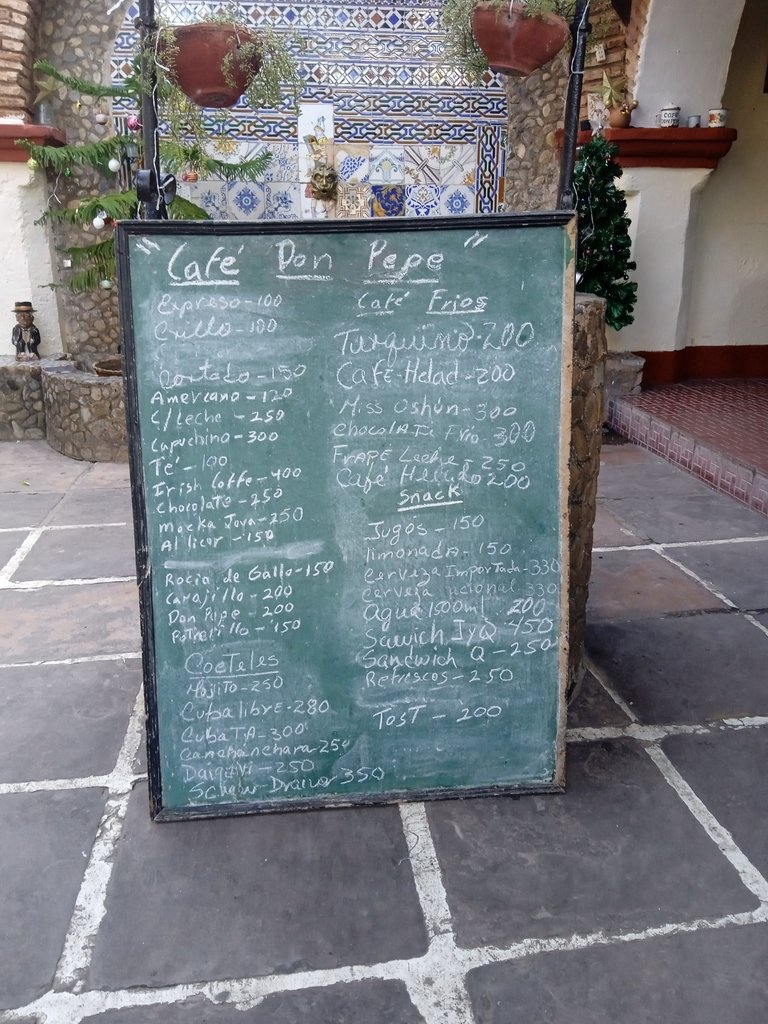 "Café Don Pepe"
Expreso - 100
Crillo - 100
Cortado - 150
Americano - 120
C/leche - 250
Capuchino - 300
Té - 100
Irish Coffe - 400
Chocolate - 250
Mocka Java - 250
Al licor - 150
Rocio de Gallo - 150
Carajillo - 200
Don Pepe - 200
Potrerillo - 150
Cocteles
Mojito - 250
Cuba libre - 280
CubaTA - 300
Canchanchara 250
Daiquiri - 250
350
Café Frios
Turquino - 200
Café-Helad - 200
Miss Oshún - 300
Chocolate Frio - 300
Frapé Leche - 250
Café Helido 200
Snack
Jugos - 150
limonada - 150
cerveza Importada - 330
cerveza nacional 330
agua 1500ml 200
Sawich JyQ 450
Sandwich Q - 250
Refrescos - 250
TosT - 200